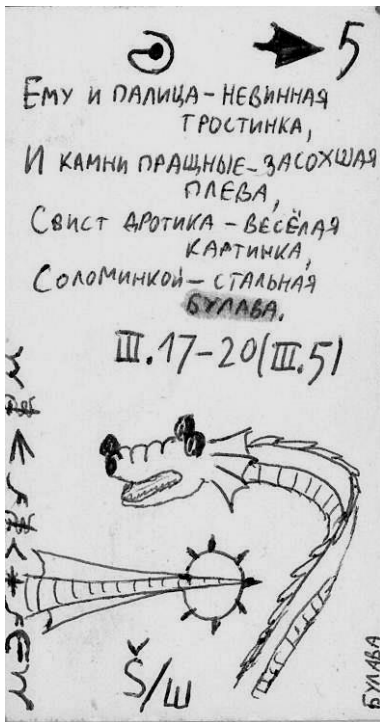 5
Ему и палица - невинная
тростинка,
И камни пращные - засохшая
плева,
Свист дротика - весёлая
картинка,
Соломинкой - стальная
булава.
III.17-20(III.5)
Š/Ш
БУЛАВА